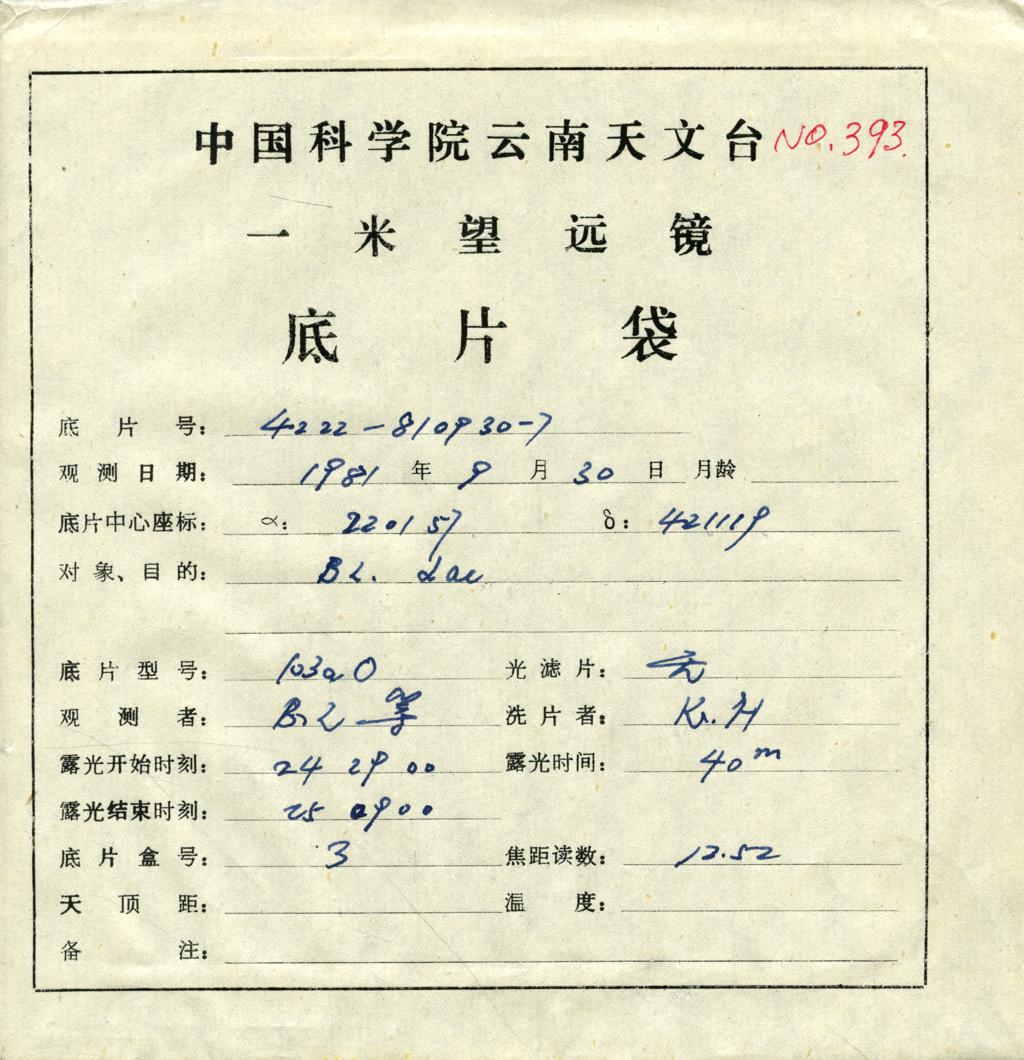 中国科学院云南天文台 NO.393.
一米望远镜
底片袋
底片号: 4222-810930-7
观测日期: 1981 年 9 月 30 日 月龄
底片中心座标: α: 220157 δ: 421119
对象、目的: BL. Lac
底片型号: 103aO 光滤片: 无
观测者: 等 洗片者:
露光开始时刻: 24 29 00 露光时间: 40m
露光结束时刻: 25 0900
底片盒号: 3 焦距读数: 12.52
天顶距: 温度:
备注: